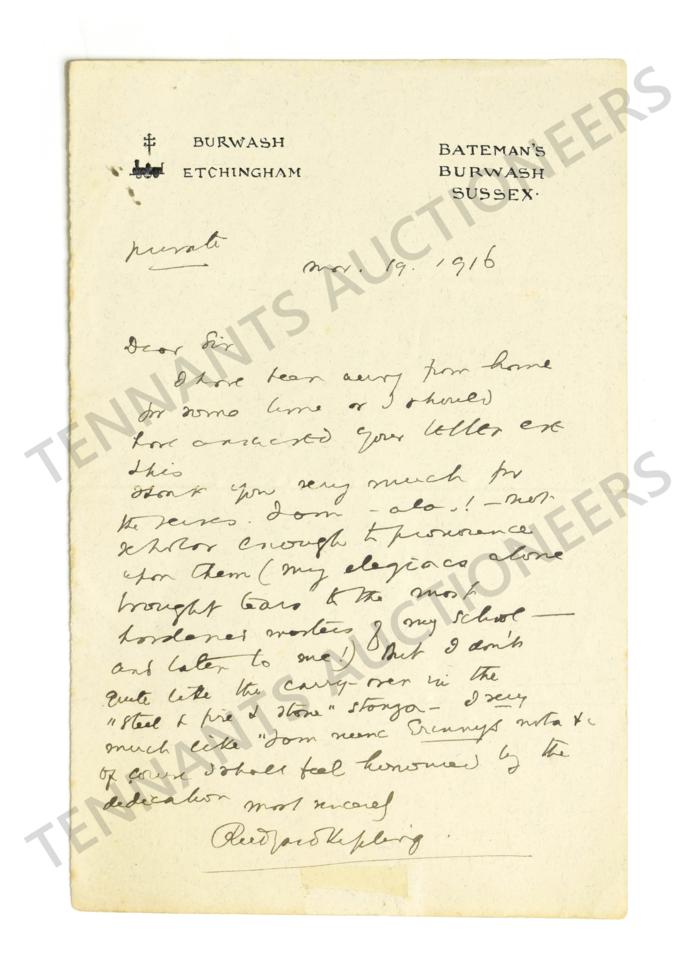 BURWASH
ETCHINGHAM
BATEMAN'S
BURWASH
SUSSEX.
private
Nov. 19. 1916
Dear Sir
I have been away from home
for some time or I should
have answered your letter ere
this
Thank you very much for
the verses. I am - alas! - not
scholar enough to pronounce
upon them (my elegiacs alone
brought tears to the most
hardened masters of my school —
and later to me!) But I don't
quite like the carry-over in the
"Steel & fire & stone" stanza - I very
much like "Iam nunc Erinnys nota &c
Of course I shall feel honoured by the
dedication
most sincerely
Rudyard Kipling.
TENNANTS AUCTIONEERS
TENNANTS AUCTIONEERS